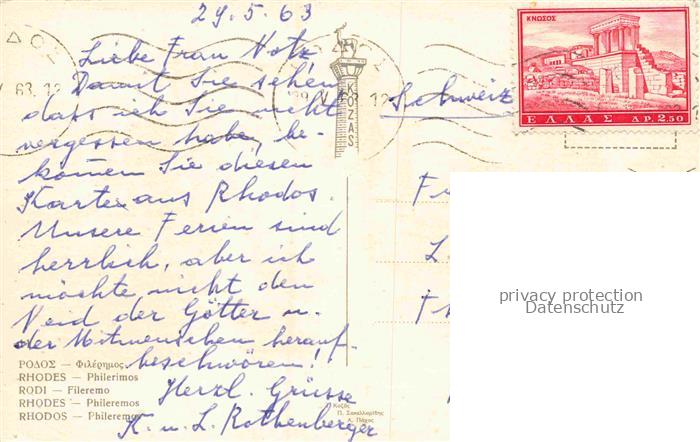 29.5.63
Liebe Frau Notz
Damit Sie sehen
dass ich Sie nicht
vergessen habe, be-
komen Sie diesen
Karten aus Rhodos.
Unsere Ferien sind
herrlich, aber ich
möchte nicht den
Neid der Götter u.
der Mitmenschen herauf-
beschwören!
Herzl. Grüsse
K. u. L. Rothenberger
ΡΟΔΟΣ — Φιλέρημος
RHODES — Philerimos
RODI — Fileremo
RHODES — Phileremos
RHODOS — Phileremos
ΚΟΖΑΣ
Κοζᾶς
Π. Σακελλαρίδης
Λ. Πάχος
63.12
12
Schweiz
ΚΝΩΣΟΣ
ΕΛΛΑΣ ΔΡ. 2.50
privacy protection
Datenschutz